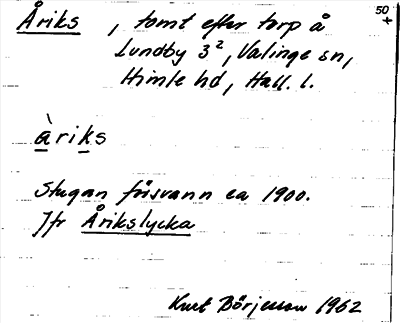 Åriks, tomt efter torp å
50
Lundby 3², Valinge sn,
Himle hd, Hall. l.
àriks
Stugan försvann ca 1900.
Jfr Årikslycka
Kurt Börjesson 1962